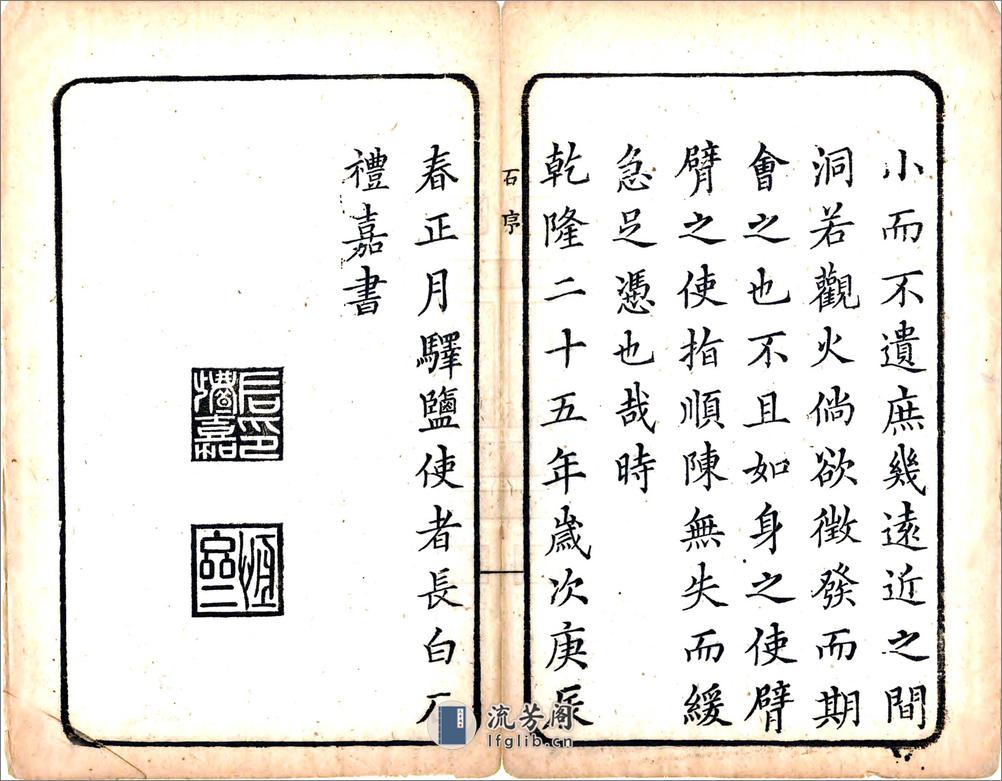 小而不遺庶幾遠近之間
洞若觀火倘欲徵發而期
會之也不且如身之使臂
臂之使指順陳無失而緩
急足憑也哉時
乾隆二十五年歲次庚辰
石序
春正月驛鹽使者長白石
禮嘉書
石印禮嘉
流芳阁
lfglib.cn